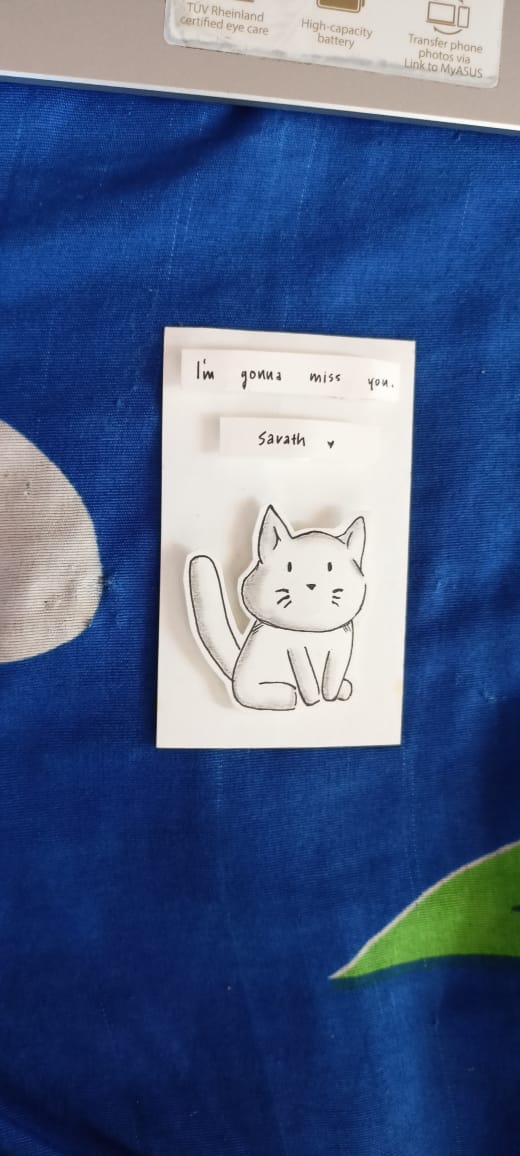 TÜV Rheinland
certified eye care
High-capacity
battery
Transfer phone
photos via
Link to MyASUS
I'm gonna miss you.
Sarath